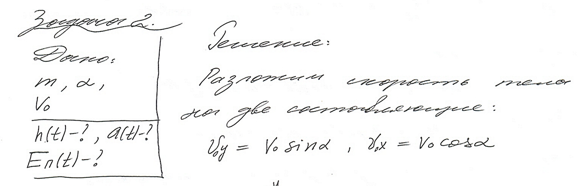 Задача 2.
Дано:
m, α,
V₀
h(t)-?, a(t)-?
Eп(t)-?
Решение:
Разложим скорость тела
на две составляющие:
V₀y = V₀ sinα , V₀x = V₀ cosα